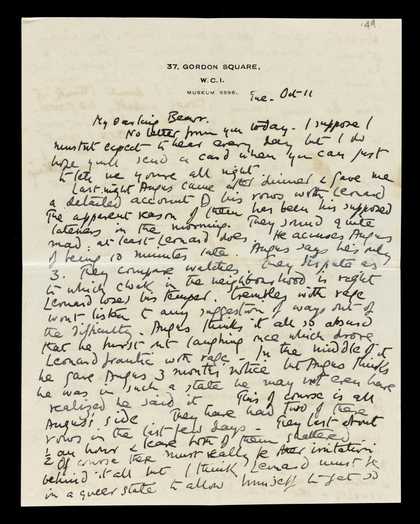 49
37, GORDON SQUARE,
W.C.1.
MUSEUM
Tue. Oct 11
My darling Bear.
No letter from you today. I suppose I
mustnt expect to hear every day but I do
hope you'll send a card when you can just
to tell me you're all right.
Last night Angus came after dinner & gave me
a detailed account of his rows with Leonard
The apparent reason of them has been his supposed
lateness in the morning. They sound quite
mad. at least Leonard does. He accuses Angus
of being 10 minutes late. Angus says he's only
3. They compare watches They dispute as
to which clock in the neighbourhood is right
Leonard loses his temper. trembles with rage
wont listen to any suggestion of ways out of
the difficulty. Angus thinks it all so absurd
that he burst out laughing once which drove
Leonard frantic with rage. In the middle of it
he gave Angus 3 months notice but Angus thinks
he was in such a state he may not even have
realized he said it. This of course is all
Angus' side They have had two of these
rows in the last few days. They last about
½ an hour & leave both of them shattered
Of course there must really be other irritation
behind it all but I think Leonard must be
in a queer state to allow himself to get so